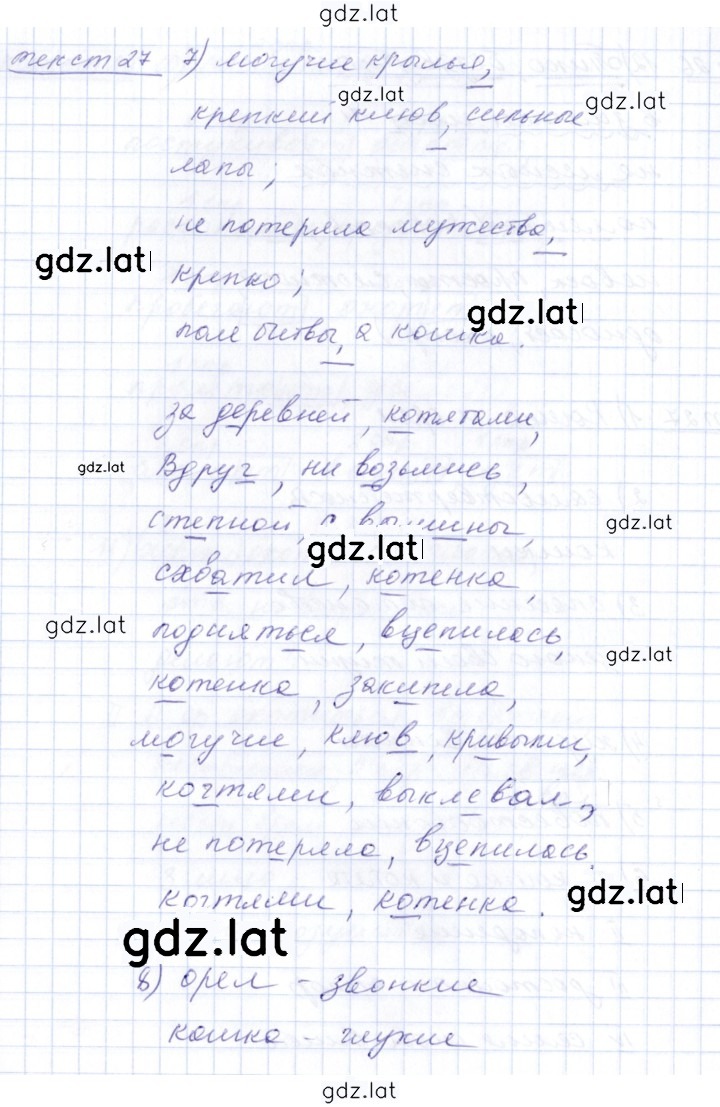 gdz.lat
текст 27 7) могучие крылья,
gdz.lat
gdz.lat
крепкий клюв, сильные
лапы;
не потеряла мужества,
gdz.lat
крепко;
gdz.lat
поле битвы, а кошка.
за деревней, котятами,
gdz.lat
Вдруг, ни возьмись,
степной, с
gdz.lat
gdz.lat
схватил, котенка,
gdz.lat
подняться, вцепилась,
gdz.lat
котенка, закипела,
могучие, клюв, кривыми,
когтями, выклевал,
не потеряла, вцепилась.
когтями, котенка.
gdz.lat
gdz.lat
8) орел - звонкие
кошка - глухие
gdz.lat